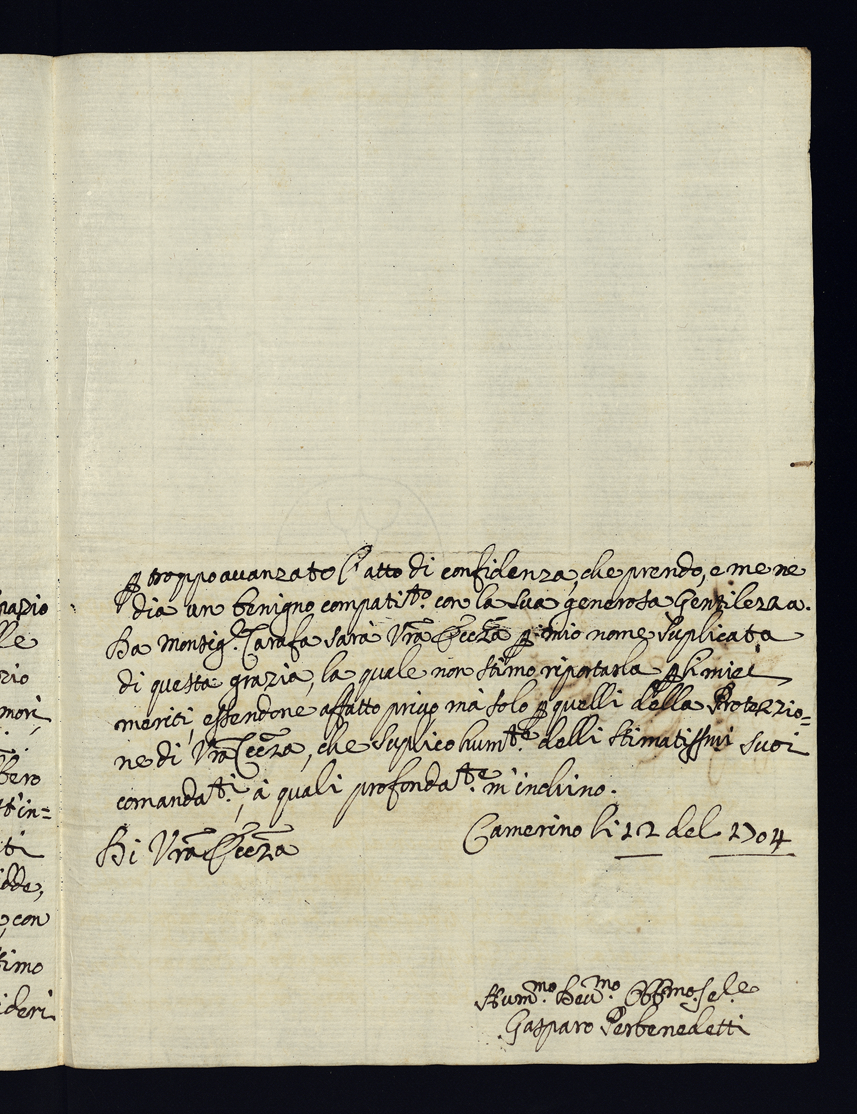 nazio
lle
zio
mori,
bero
tt'in=
ti
idde,
, con
simo
ideri
ꝑ troppo auanzato l'atto di confidenza, che prendo, e me ne
dia un benigno compatito. con la sua generosa Gentileza.
Da Monsig.r Carafa sarà Vr̃a Ecc̃za ꝑ mio nome suplicata
di questa grazia, la quale non stimo riportarla ꝑ li miei
meriti, essendone affatto privo, mà solo ꝑ quelli della Protezzio=
ne di Vr̃a Ecc̃za, che suplico hum.te delli stimatissmi suoi
comanda.ti, à quali profonda.te m'inchino.
Di Vr̃a Ecc̃za
Camerino li 12 del 1704
Hum.mo Deu.mo Obb.mo Se.re
Gasparo Perbenedetti